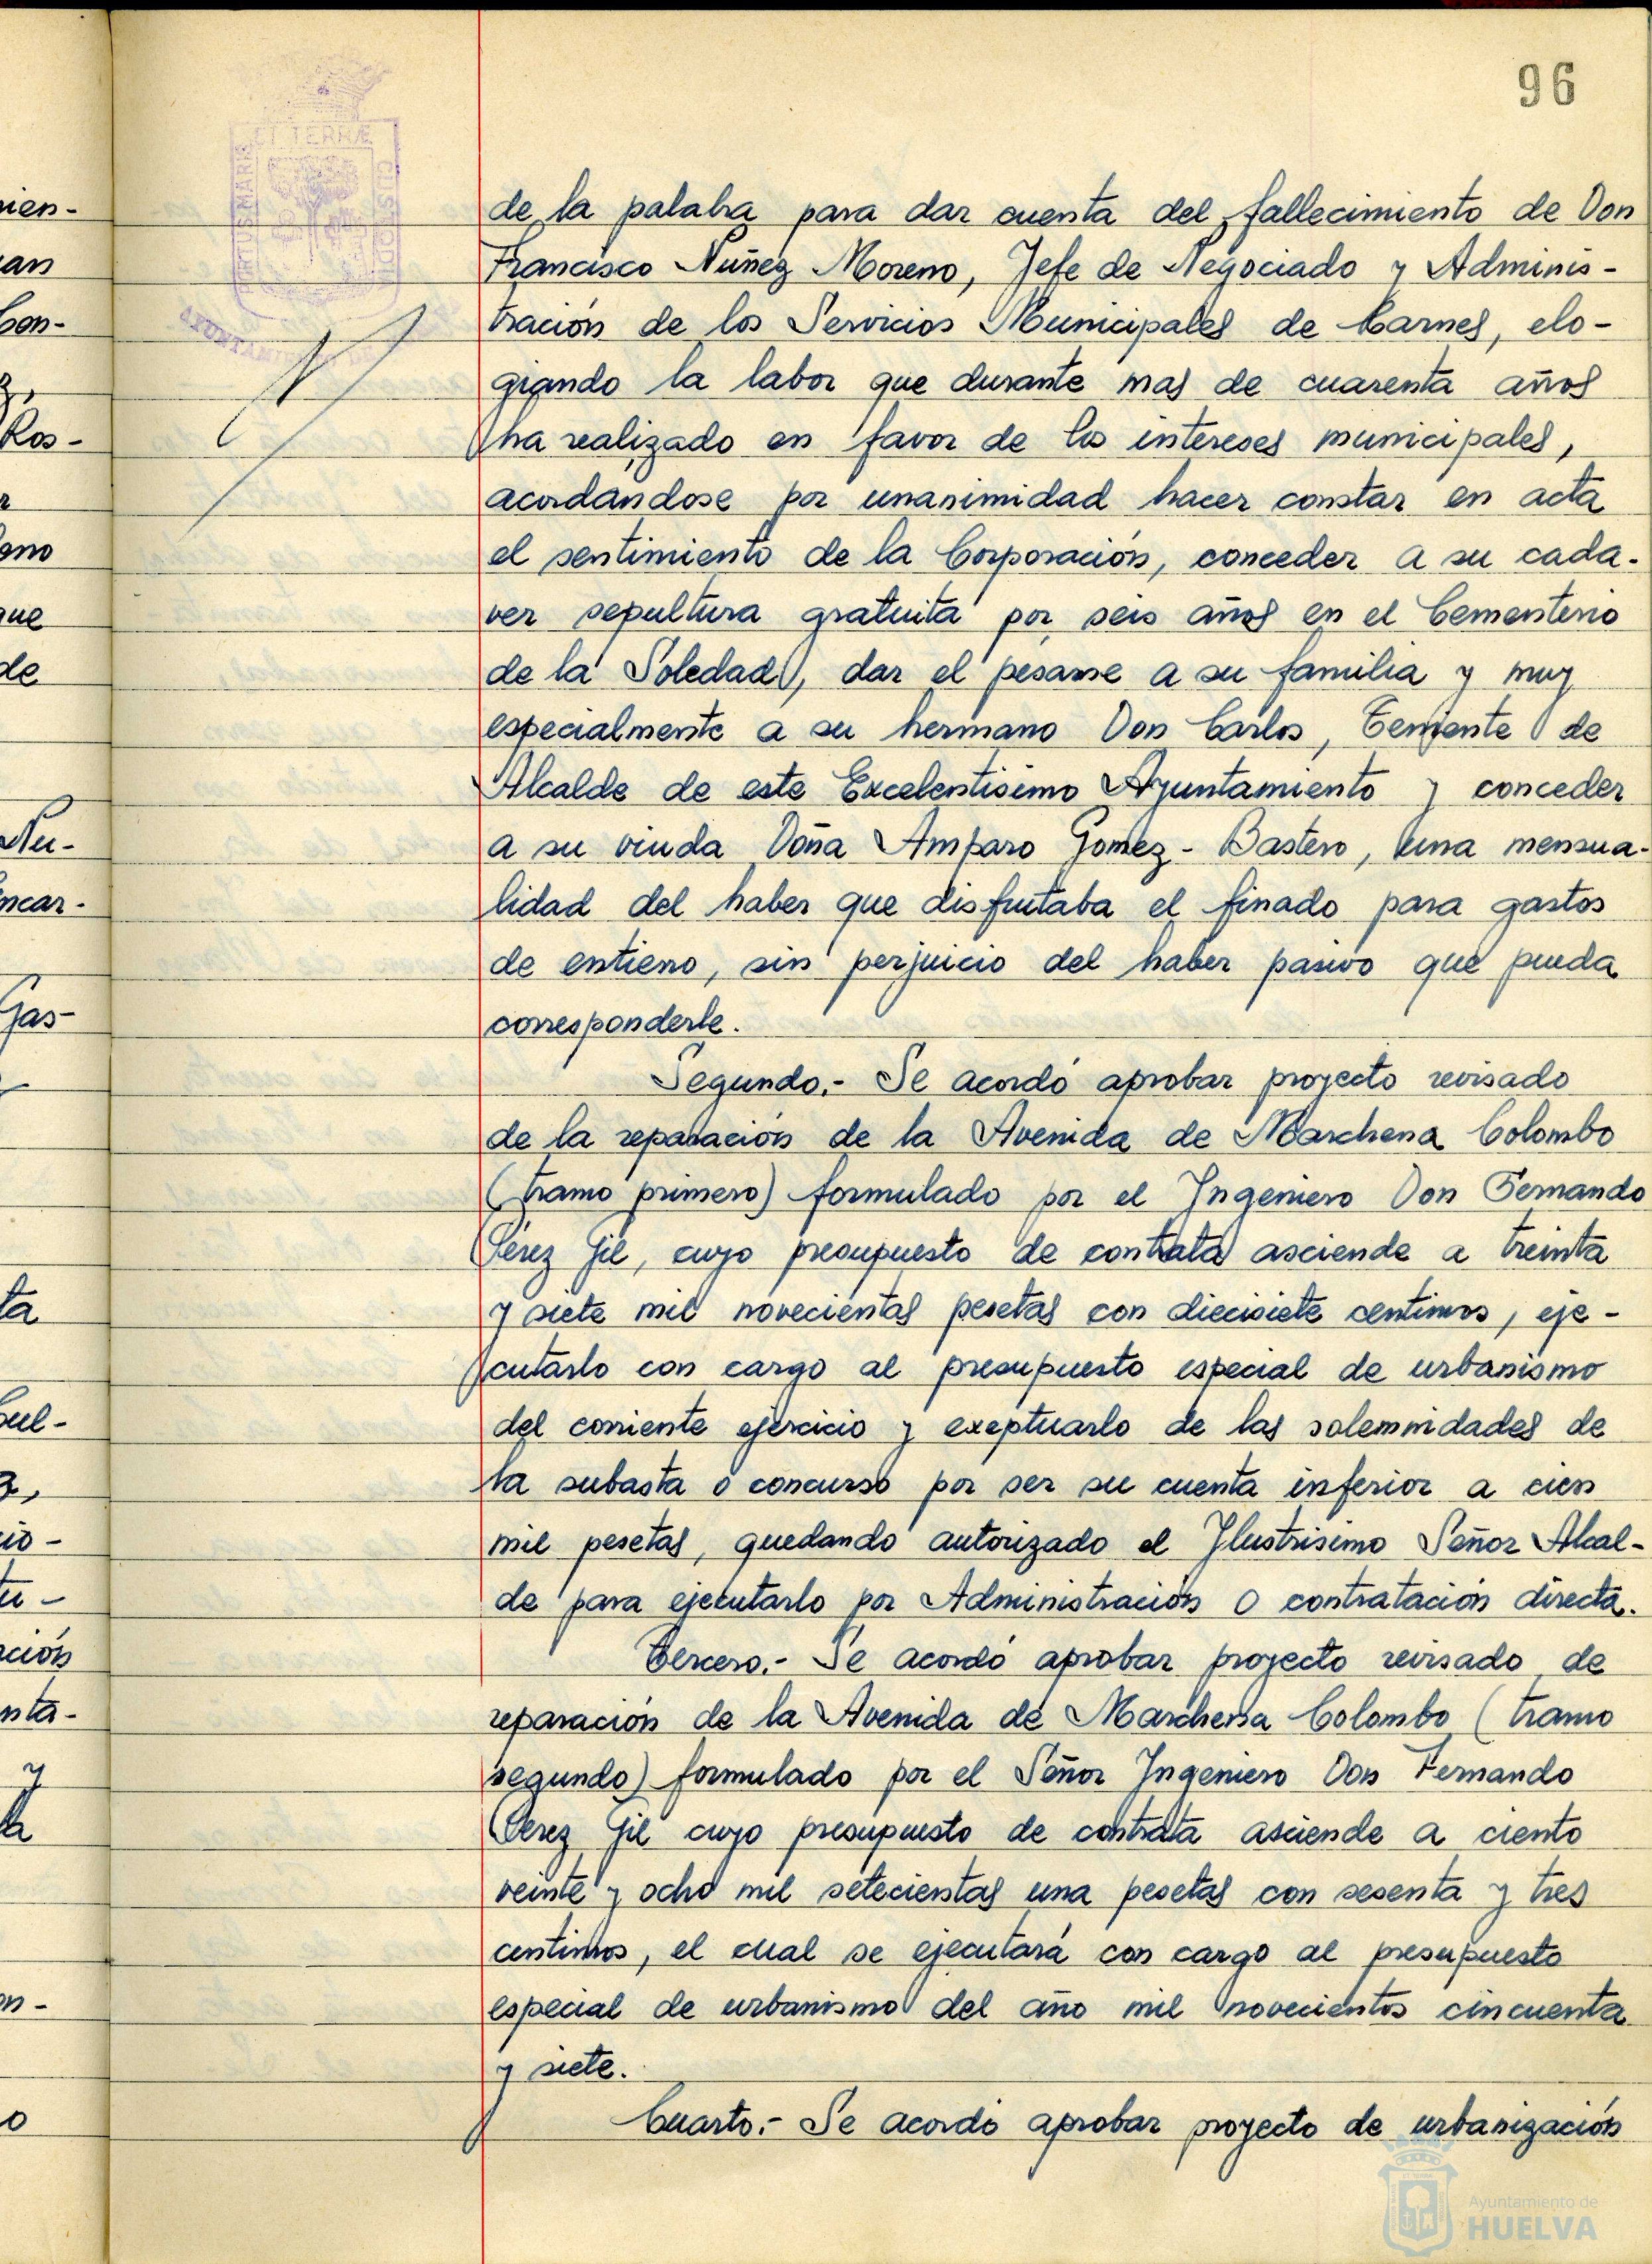 96
PORTUS MARIS ET TERRÆ CUSTODIA
AYUNTAMIENTO DE
de la palabra para dar cuenta del fallecimiento de Don
Francisco Nuñez Moreno, Jefe de Negociado y Adminis-
tración de los Servicios Municipales de Carnes, elo-
giando la labor que durante mas de cuarenta años
ha realizado en favor de los intereses municipales,
acordándose por unanimidad hacer constar en acta
el sentimiento de la Corporación, conceder a su cada-
ver sepultura gratuita por seis años en el Cementerio
de la Soledad, dar el pésame a su familia y muy
especialmente a su hermano Don Carlos, Teniente de
Alcalde de este Excelentísimo Ayuntamiento y conceder
a su viuda Doña Amparo Gomez-Bastero, una mensua-
lidad del haber que disfrutaba el finado para gastos
de entierro, sin perjuicio del haber pasivo que pueda
corresponderle.
Segundo.- Se acordó aprobar proyecto revisado
de la reparación de la Avenida de Marchena Colombo
(tramo primero) formulado por el Ingeniero Don Fernando
Pérez Gil, cuyo presupuesto de contrata asciende a treinta
y siete mil novecientas pesetas con diecisiete centimos, eje-
cutarlo con cargo al presupuesto especial de urbanismo
del corriente ejercicio y exeptuarlo de las solemnidades de
la subasta o concurso por ser su cuenta inferior a cien
mil pesetas, quedando autorizado el Ilustrisimo Señor Alcal-
de para ejecutarlo por Administración o contratación directa.
Tercero.- Se acordó aprobar proyecto revisado de
reparación de la Avenida de Marchena Colombo (tramo
segundo) formulado por el Señor Ingeniero Don Fernando
Pérez Gil cuyo presupuesto de contrata asciende a ciento
veinte y ocho mil setecientas una pesetas con sesenta y tres
centimos, el cual se ejecutará con cargo al presupuesto
especial de urbanismo del año mil novecientos cincuenta
y siete.
Cuarto.- Se acordó aprobar proyecto de urbanización
Ayuntamiento de
HUELVA